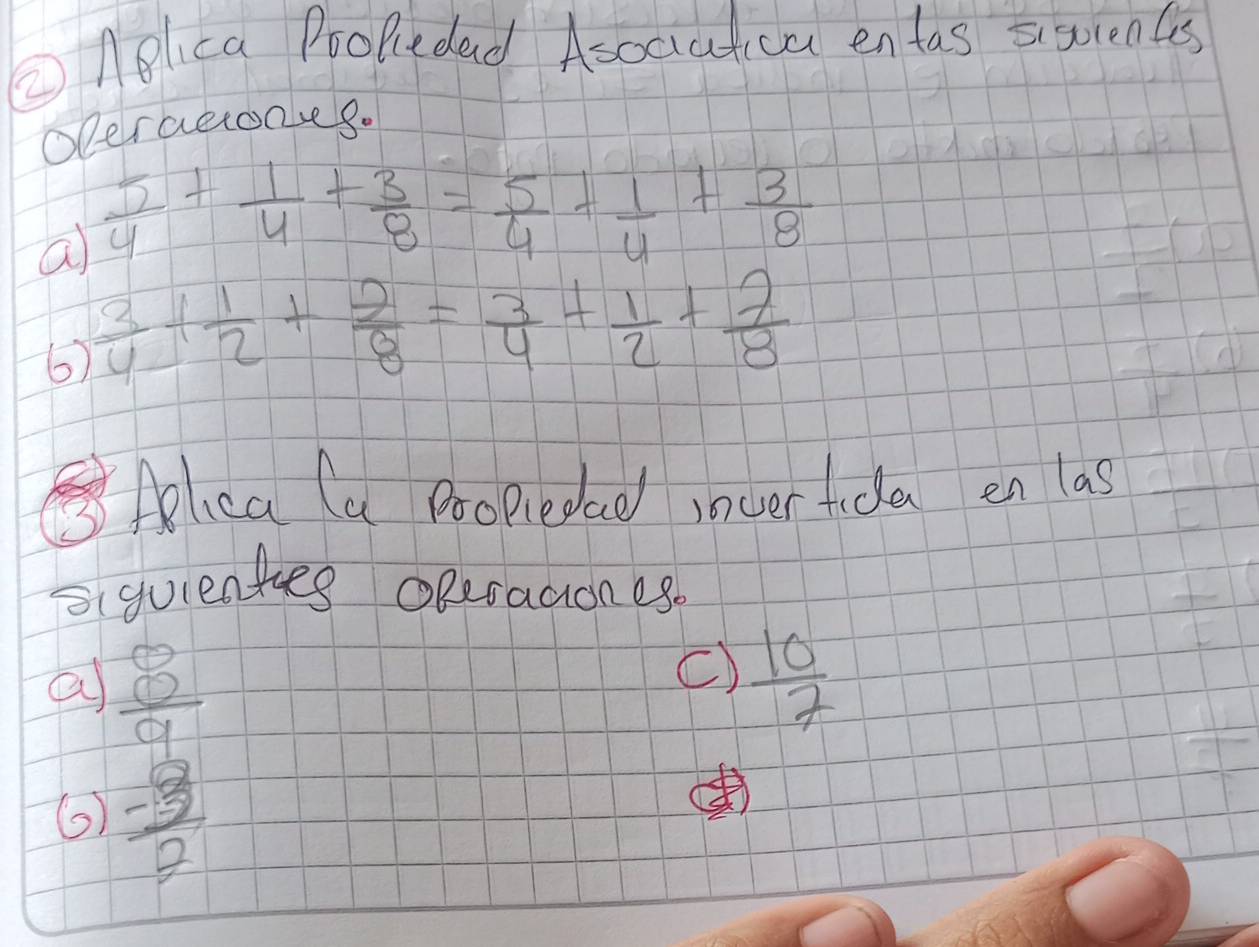 ② Aplica Propiedad Asociativa en las siguientes
operaciones.
a) 5/4 + 1/4 + 3/8 = 5/4 + 1/4 + 3/8
b) 3/4 + 1/2 + 2/8 = 3/4 + 1/2 + 2/8
③ Aplica la Propiedad invertida en las
siguientes operaciones.
a) 8/9 c) 10/7
b)